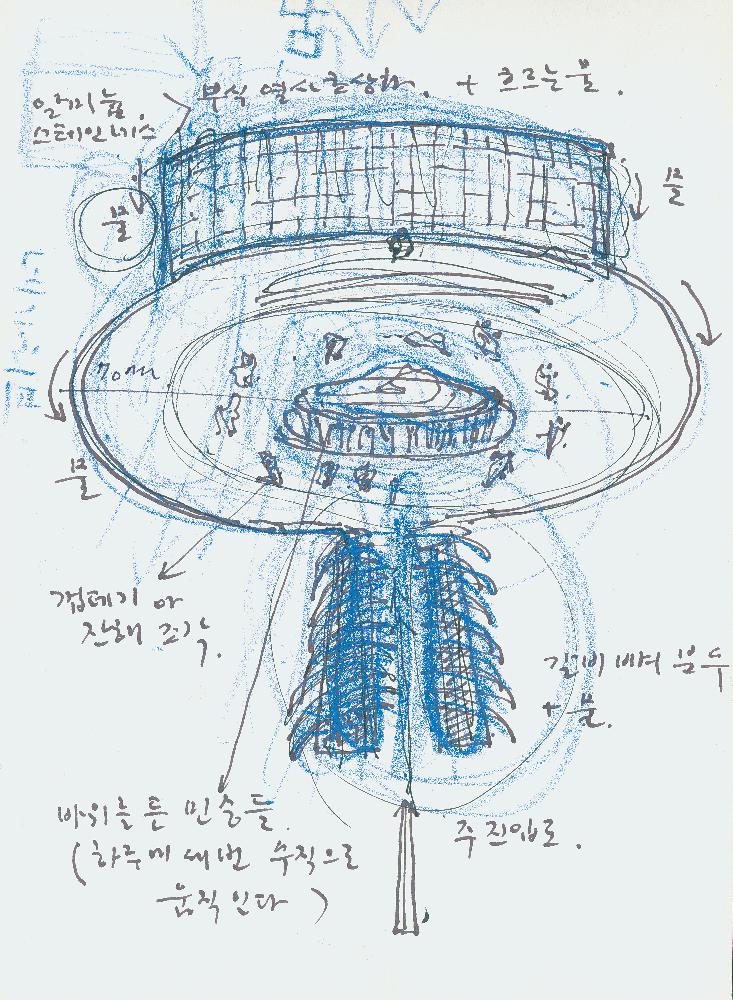 부식 열사 초상화. + 흐르는 물.
알루미늄.
스테인레스
물
물
70m
물
껍데기 와
잔해 조각.
갈비뼈 분수
+ 물.
바위를 든 민중들.
(하루에 세번 수직으로
움직인다)
주진입로.